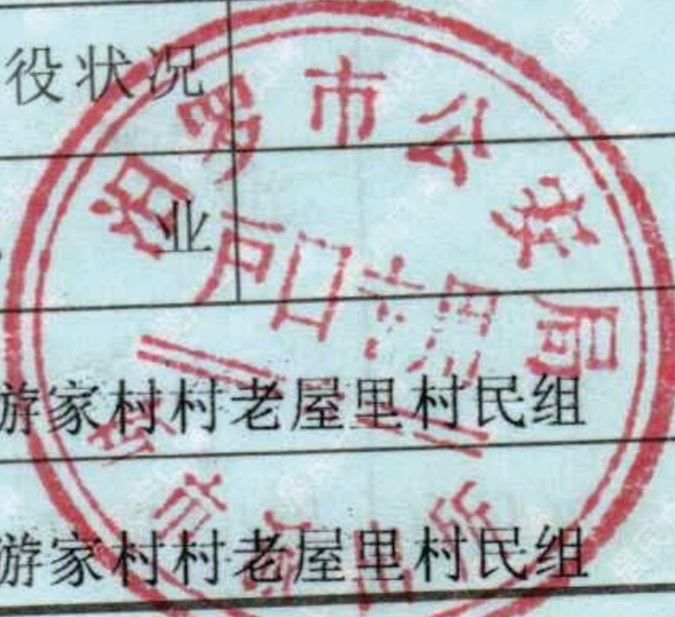 役状况
业
游家村村老屋里村民组
游家村村老屋里村民组
汨罗市公安局
户口专用